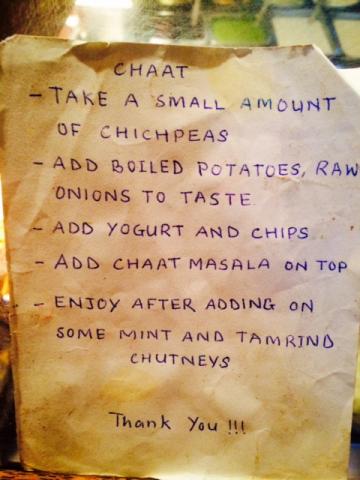 CHAAT
- TAKE A SMALL AMOUNT
OF CHICHPEAS
- ADD BOILED POTATOES, RAW
ONIONS TO TASTE
- ADD YOGURT AND CHIPS
- ADD CHAAT MASALA ON TOP
- ENJOY AFTER ADDING ON
SOME MINT AND TAMRIND
CHUTNEYS
Thank You !!!